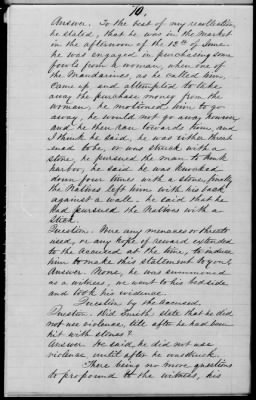 10.
Answer. To the best of my recollection,
he stated, that he was in the Market
in the afternoon of the 12th of June.
he was engaged in purchasing some
fowls from a woman, when one of
the Mandarines, as he called him
came up and attempted to take
away the purchase money from the
woman, he motioned him to go
away, he would not go away however
and he then ran towards him, and
I think he said, he was either threat
ened to be, or was struck with a
stone, he pursued the man to
harbor, he said he was knocked
down four times with a stone, finally
the Natives left him with his back
against a wall. he said that he
had pursued the Natives with a
Stick.
Question. Were any menaces or threats
used, or any hope of reward extended
to the accused at the time, to induce
him to make this statement to you?
Answer. None, he was summoned
as a witness, we went to his bedside
and took his evidence.
Question by the accused.
Question. Did Smith state that he did
not use violence, till after he had been
hit with stones?
Answer. He said he did not use
violence until after he was struck.
There being no more questions
to propound to the witness, his